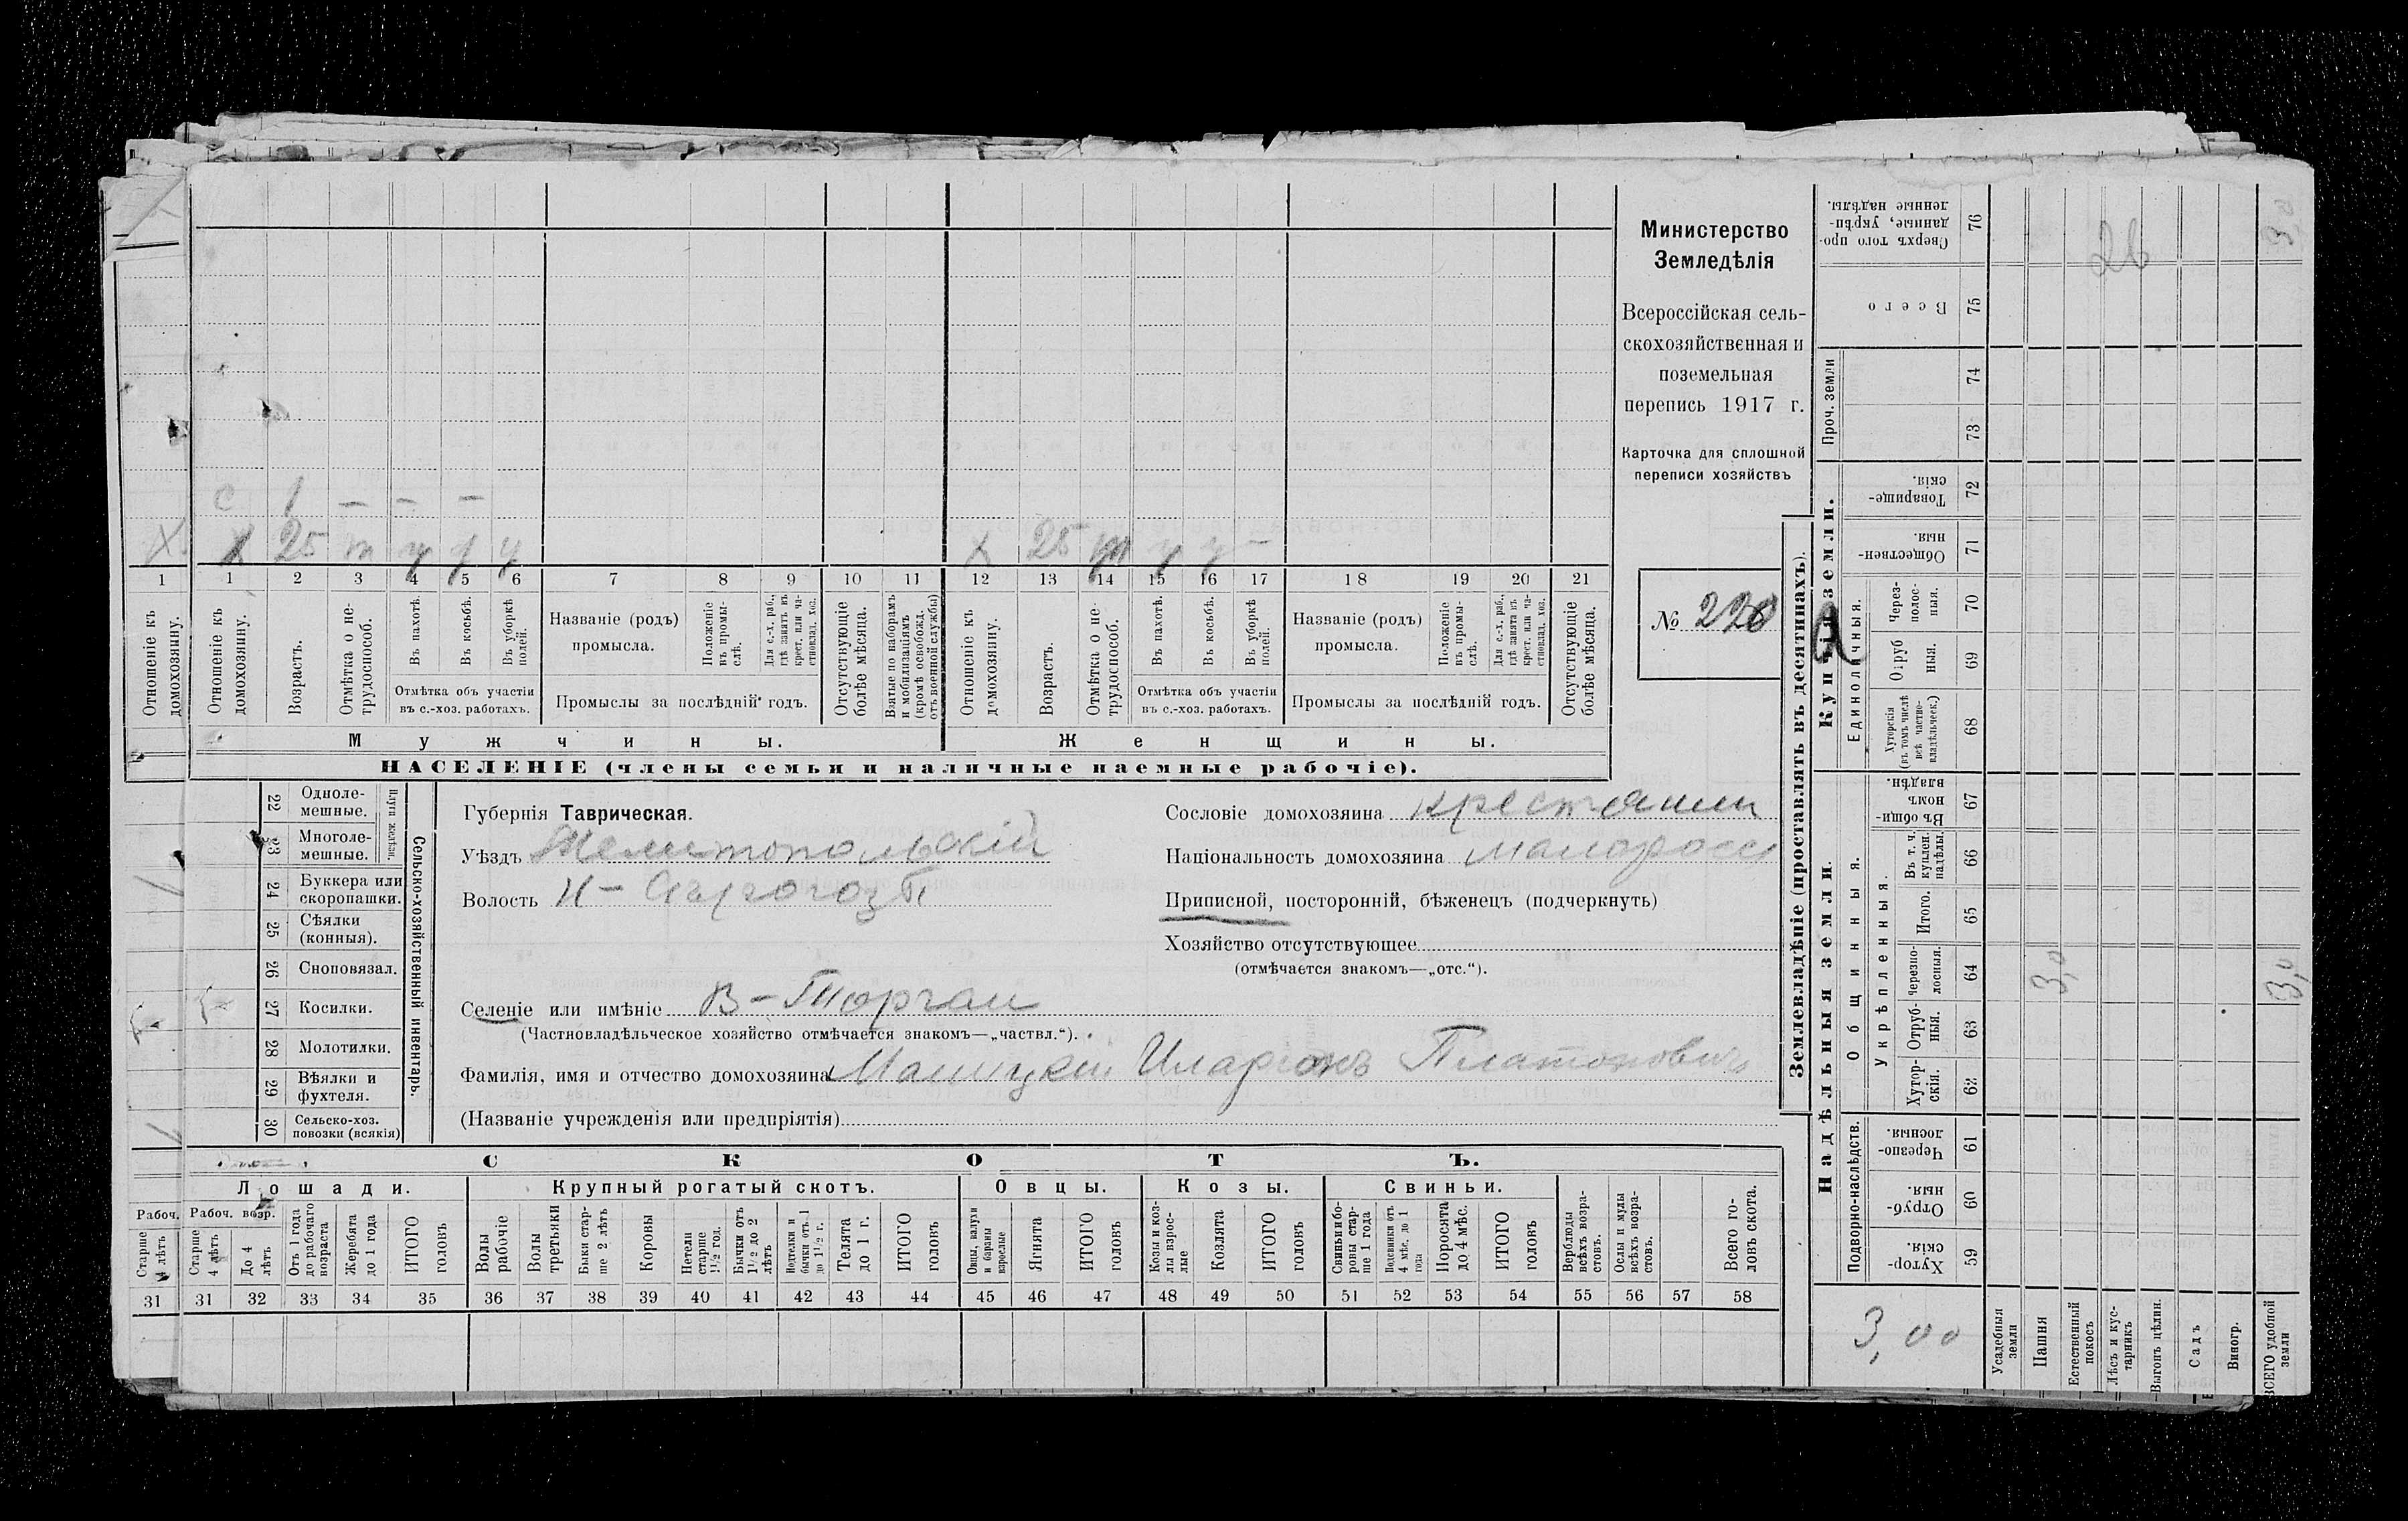 с 1 — — —
х х 25 т у у у х 25 т у у —
1 1 2 3 4 5 6 7 8 9 10 11 12 13 14 15 16 17 18 19 20 21
Отношеніе къ домохозяину.
Отношеніе къ домохозяину.
Возрастъ.
Отмѣтка о не-трудоспособ.
Въ пахотѣ.
Въ косьбѣ.
Въ уборкѣ полей.
Отмѣтка объ участіи
въ с.-хоз. работахъ.
Названіе (родъ)
промысла.
Положеніе въ промы-слѣ.
Для с.-х. раб., гдѣ занятъ въ крест. или ча-стновлад. хоз.
Промыслы за послѣдній годъ.
Отсутствующіе болѣе мѣсяца.
Взятые по наборамъ и мобилизаціямъ (кромѣ освобожд. отъ военной службы)
Отношеніе къ домохозяину.
Возрастъ.
Отмѣтка о не-трудоспособ.
Въ пахотѣ.
Въ косьбѣ.
Въ уборкѣ полей.
Отмѣтка объ участіи
въ с.-хоз. работахъ.
Названіе (родъ)
промысла.
Положеніе въ промы-слѣ.
Для с.-х. раб., гдѣ занята въ крест. или ча-стновлад. хоз.
Промыслы за послѣдній годъ.
Отсутствующіе болѣе мѣсяца.
Мужчины.
Женщины.
НАСЕЛЕНІЕ (члены семьи и наличные наемные рабочіе).
Министерство
Земледѣлія
Всероссійская сель-
скохозяйственная и
поземельная
перепись 1917 г.
Карточка для сплошной
переписи хозяйствъ
№ 220
22 Одноле-мешные.
23 Многоле-мешные.
Плуги желѣзн.
24 Буккера или скоропашки.
25 Сѣялки (конныя).
26 Сноповязал.
27 Косилки.
28 Молотилки.
29 Вѣялки и фухтеля.
30 Сельско-хоз. повозки (всякія)
Сельско-хозяйственный инвентарь.
Губернія Таврическая.
Уѣздъ Мелитопольскій
Волость Н-Сѣрогозы
Селеніе или имѣніе В-Торгаи
(Частновладѣльческое хозяйство отмѣчается знакомъ—„частвл.“).
Фамилія, имя и отчество домохозяина Иларіонъ Платоновичъ
(Названіе учрежденія или предпріятія)
Сословіе домохозяина крестьянин
Національность домохозяина малоросс
Приписной, посторонній, бѣженецъ (подчеркнуть)
Хозяйство отсутствующее
(отмѣчается знакомъ—„отс.“).
СКОТЪ.
Лошади.
Крупный рогатый скотъ.
Овцы.
Козы.
Свиньи.
Рабоч.
Рабоч. возр.
Старше 4 лѣтъ
Старше 4 лѣтъ
До 4 лѣтъ
Отъ 1 года до рабочаго возраста
Жеребята до 1 года
ИТОГО головъ
Волы рабочіе
Волы третьяки
Быки стар-ше 2 лѣтъ
Коровы
Нетели старше 1½ год.
Бычки отъ 1½ до 2 лѣтъ
Подтелки и бычки отъ 1 до 1½ г.
Телята до 1 г.
ИТОГО головъ
Овцы, валухи и бараны взрослые
Ягнята
ИТОГО головъ
Козы и коз-лы взрос-лые
Козлята
ИТОГО головъ
Свиньи и бо-ровы стар-ше 1 года
Подсвинки отъ 4 мѣс. до 1 года
Поросята до 4 мѣс.
ИТОГО головъ
Верблюды всѣхъ возра-стовъ.
Ослы и мулы всѣхъ возра-стовъ.
Всего го-ловъ скота.
31 31 32 33 34 35 36 37 38 39 40 41 42 43 44 45 46 47 48 49 50 51 52 53 54 55 56 57 58
Землевладѣніе (проставлять въ десятинахъ).
Надѣльныя земли.
Купчія земли.
Проч. земли
Подворно-наслѣдств.
Общинныя.
Укрѣпленныя.
Единоличныя.
Хутор-скія. 59
Отруб-ныя. 60
Черезпо-лосныя. 61
Хутор-скія. 62
Отруб-ныя. 63
Черезпо-лосныя. 64
Итого. 65
Въ т. ч. куплен. надѣлы. 66
Въ общи-номъ владѣн. 67
Хуторскія (въ томъ числѣ всѣ частно-владѣльческ.) 68
Отруб ныя. 69
Через-полос-ныя. 70
Обществен-ныя. 71
Товарище-скія. 72
73
74
Всего 75
Сверхъ того про-данные, укрѣп-ленные надѣлы. 76
26
3,0
3,0
3,0
3,00
Усадебныя земли
Пашня
Естественный покосъ
Лѣсъ и кус-тарникъ
Выгонъ цѣлин.
Садъ
Виногр.
ВСЕГО удобной земли